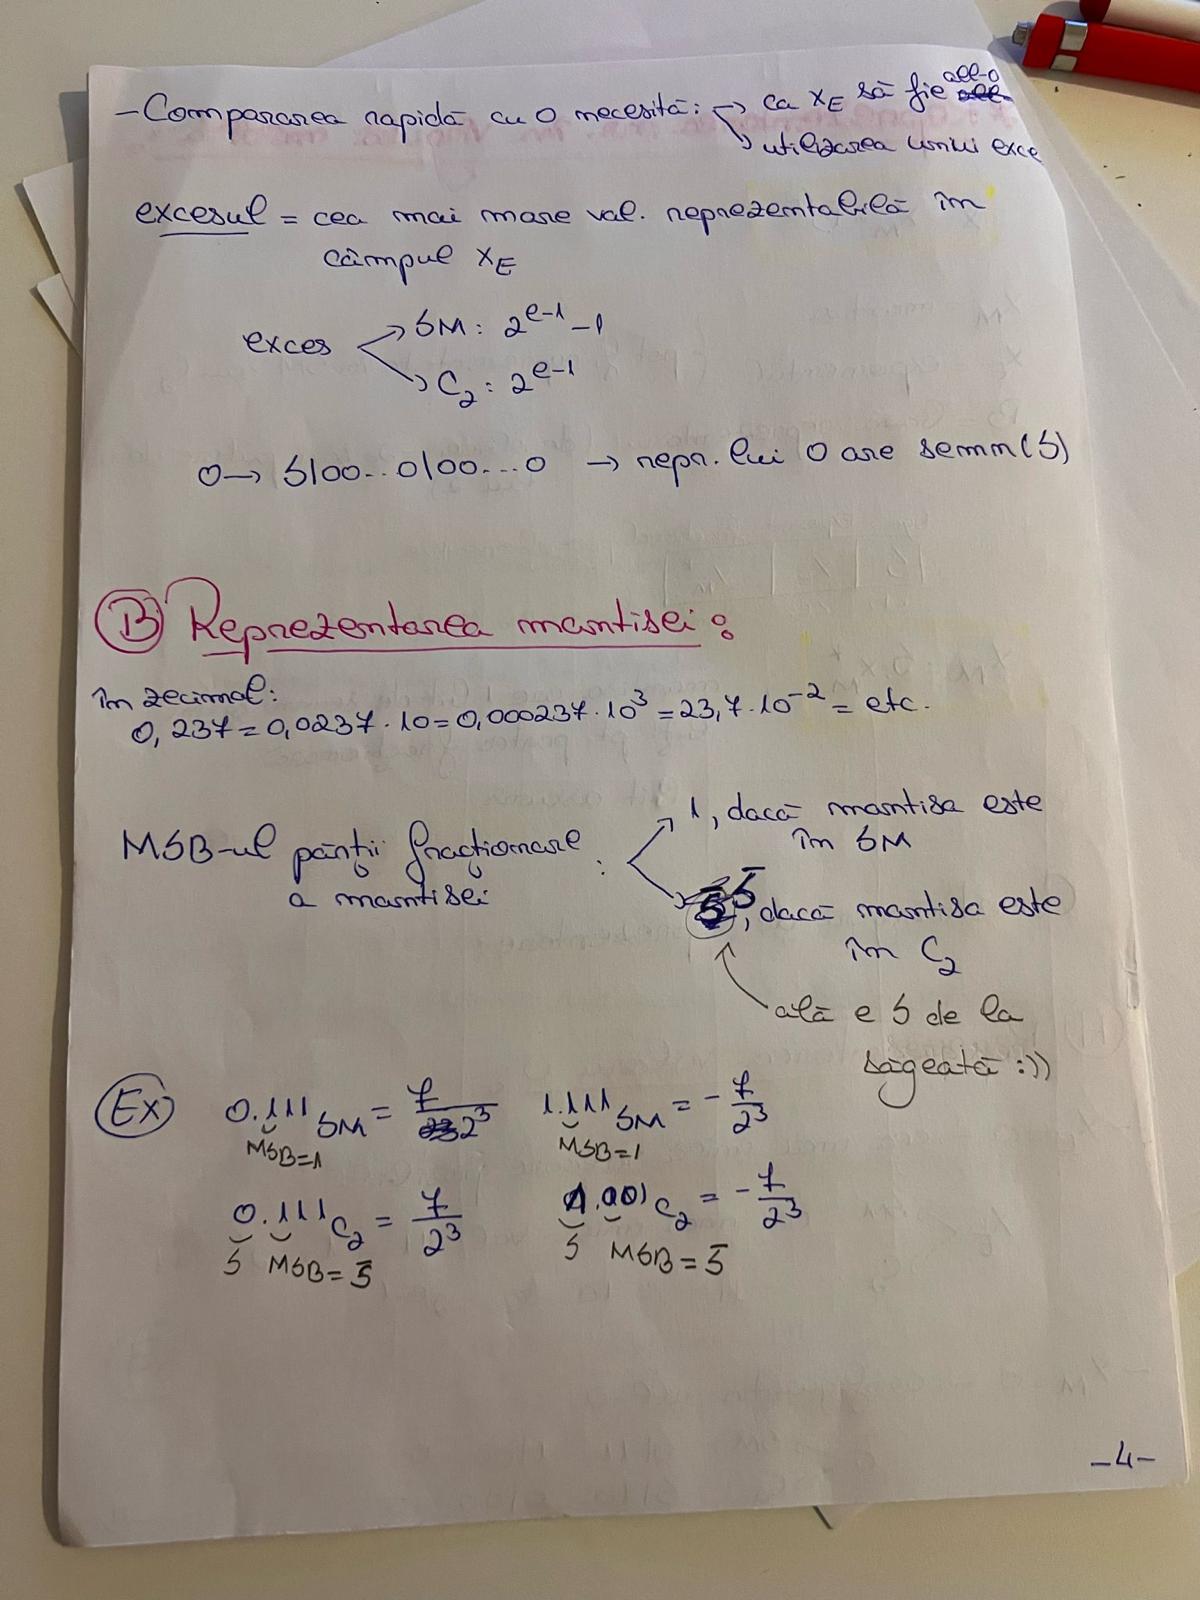 -Compararea rapidă cu 0 necesită: → ca XE să fie all-0
→ utilizarea unui exce
excesul = cea mai mare val. reprezentabilă în
câmpul XE
exces → SM: 2^(e-1)-1
→ C2: 2^(e-1)
0 → S|00...0|00...0 → repr. lui 0 are semn(S)
B Reprezentarea mantisei:
în zecimal:
0,237=0,0237·10=0,000237·10³=23,7·10⁻²= etc.
MSB-ul părții fracționare : → 1, dacă mantisa este
a mantisei în SM
→ S̅, dacă mantisa este
în C2
ală e S de la
săgeată :))
Ex 0.111 SM = 7/2³ 1.111 SM = -7/2³
MSB=1 MSB=1
0.111 C2 = 7/2³ 1.001 C2 = -7/2³
S MSB=S̅ S MSB=S̅
-4-